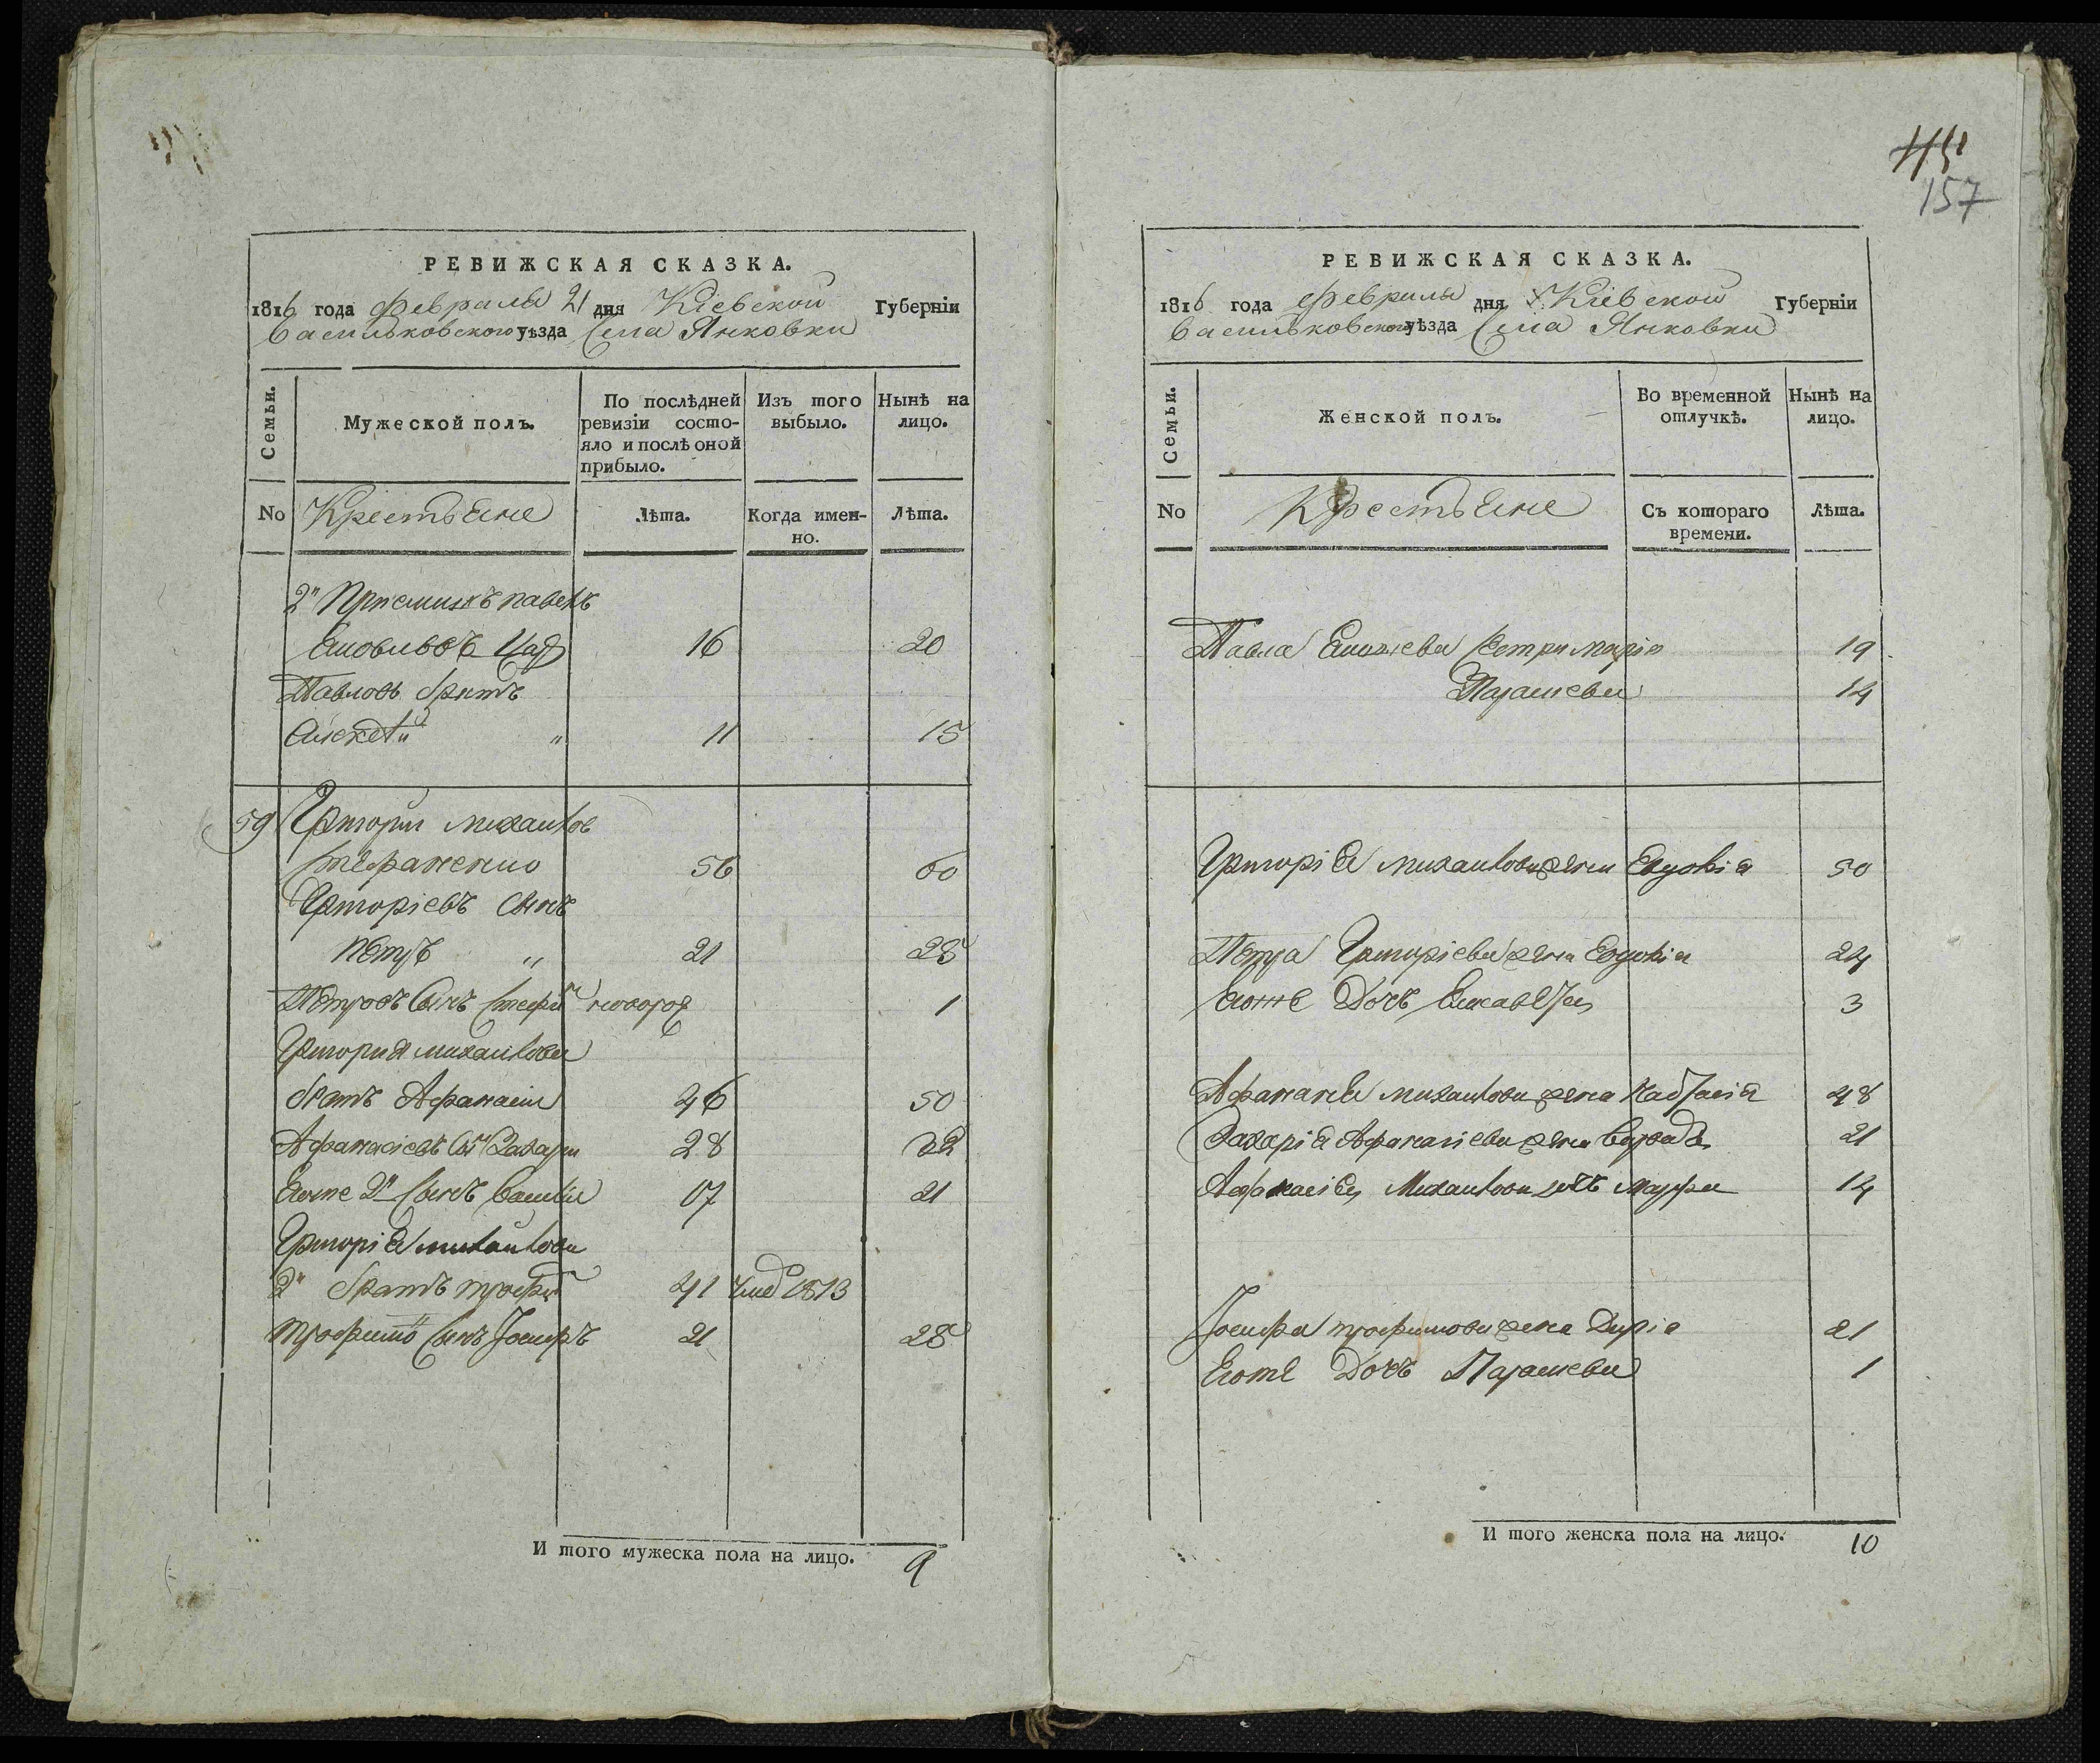 РЕВИЖСКАЯ СКАЗКА.
1816 года февраля 21 дня Кіевской Губерніи
Васильковского уѣзда Села Янковки
Семьи.
Мужеской полъ.
По послѣдней ревизіи состо-
яло и послѣ оной
прибыло.
Изъ того выбыло.
Нынѣ на лицо.
No Крестьяне Лѣта. Когда имен-
но. Лѣта.
2й Приемишъ павелъ
16 20
Павловъ братъ
Алексѣй " 11 15
59 Григорий михаилов
Стефаненко 56 60
Григоріевъ сынъ
петръ " 21 25
Петровъ сынъ стефан новорож 1
Григория михаилова
братъ Афанасии 46 50
Афанасіевъ сы Захари 28 32
Егоже 2й сынъ василіи 17 21
Григорія михаилова
2й братъ трофим 41 умер 1813
трофимо сынъ Іосифъ 21 25
И того мужеска пола на лицо. 9
157
РЕВИЖСКАЯ СКАЗКА.
1816 года февраля дня Кіевской Губерніи
Васильковского уѣзда Села Янковки
Семьи.
Женской полъ.
Во временной отлучкѣ.
Нынѣ на лицо.
No Крестьяне Съ котораго
времени. Лѣта.
Павла сестри марія 19
Параскева 14
Григорія михаилова жена Евдокія 50
Петра Григоріева жена Евдокія 24
Егоже Дочь Елисавета 3
Афанасія михаилова жена Настасія 48
Захарія Афанасіева жена 21
Афанасія Михаилова дочь марфа 14
Іосифа трофимова жена Дарія 21
Егоже Дочь Параскева 1
И того женска пола на лицо. 10